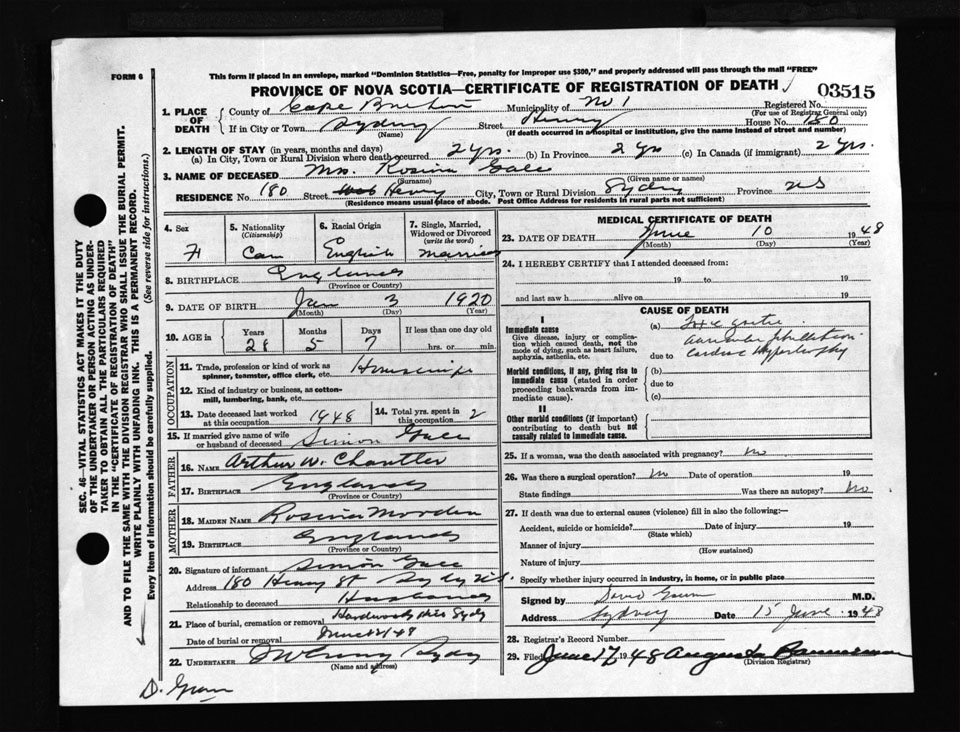 FORM 6
This form if placed in an envelope, marked "Dominion Statistics—Free, penalty for improper use $300," and properly addressed will pass through the mail "FREE"
PROVINCE OF NOVA SCOTIA—CERTIFICATE OF REGISTRATION OF DEATH
03515
1. PLACE OF DEATH
County of Cape Breton Municipality of No 1 Registered No.
(For use of Registrar General only)
If in City or Town Sydney Street Henry House No. 180
(Name) (If death occurred in a hospital or institution, give the name instead of street and number)
2. LENGTH OF STAY (in years, months and days)
(a) In City, Town or Rural Division where death occurred 2 yrs. (b) In Province 2 yrs (c) In Canada (if immigrant) 2 yrs.
3. NAME OF DECEASED Mrs. Rosina Gale
(Surname) (Given name or names)
RESIDENCE No. 180 Street Henry City, Town or Rural Division Sydney Province NS
(Residence means usual place of abode. Post Office Address for residents in rural parts not sufficient)
4. Sex
F
5. Nationality
(Citizenship)
Can
6. Racial Origin
English
7. Single, Married, Widowed or Divorced
(write the word)
married
8. BIRTHPLACE England
(Province or Country)
9. DATE OF BIRTH Jan 3 1920
(Month) (Day) (Year)
10. AGE in Years Months Days If less than one day old
28 5 7 hrs. or min.
OCCUPATION
11. Trade, profession or kind of work as spinner, teamster, office clerk, etc. Housewife
12. Kind of industry or business, as cotton-mill, lumbering, bank, etc.
13. Date deceased last worked at this occupation 1948
14. Total yrs. spent in this occupation 2
15. If married give name of wife or husband of deceased Simon Gale
FATHER
16. NAME Arthur W. Chantler
17. BIRTHPLACE England
(Province or Country)
MOTHER
18. MAIDEN NAME Rosina Morden
19. BIRTHPLACE England
(Province or Country)
20. Signature of informant Simon Gale
Address 180 Henry St Sydney N.S.
Relationship to deceased Husband
21. Place of burial, cremation or removal Hardwood Hill Sydney
Date of burial or removal June 12/48
22. UNDERTAKER Sydney
(Name and address)
D. Gunn
MEDICAL CERTIFICATE OF DEATH
23. DATE OF DEATH June 10 1948
(Month) (Day) (Year)
24. I HEREBY CERTIFY that I attended deceased from:
19 to 19
and last saw h alive on 19
CAUSE OF DEATH
I
Immediate cause
Give disease, injury or complication which caused death, not the mode of dying, such as heart failure, asphyxia, asthenia, etc.
(a) Toxic goitre
auricular fibrillation
due to Cardiac Hypertrophy
Morbid conditions, if any, giving rise to immediate cause (stated in order proceeding backwards from immediate cause).
(b)
due to
(c)
II
Other morbid conditions (if important) contributing to death but not causally related to immediate cause.
25. If a woman, was the death associated with pregnancy? No
26. Was there a surgical operation? No Date of operation 19
State findings Was there an autopsy? No
27. If death was due to external causes (violence) fill in also the following:—
Accident, suicide or homicide? Date of injury 19
(State which)
Manner of injury
(How sustained)
Nature of injury
Specify whether injury occurred in industry, in home, or in public place
Signed by David Gunn M.D.
Address Sydney Date 15 June 1948
28. Registrar's Record Number
29. Filed June 17 1948 Augusta Bannerman
(Division Registrar)
SEC. 46—VITAL STATISTICS ACT MAKES IT THE DUTY
OF THE UNDERTAKER OR PERSON ACTING AS UNDER-
TAKER TO OBTAIN ALL THE PARTICULARS REQUIRED
IN THE "CERTIFICATE OF REGISTRATION OF DEATH"
AND TO FILE THE SAME WITH THE DIVISION REGISTRAR WHO SHALL ISSUE THE BURIAL PERMIT.
WRITE PLAINLY WITH UNFADING INK. THIS IS A PERMANENT RECORD.
Every item of information should be carefully supplied. (See reverse side for instructions.)